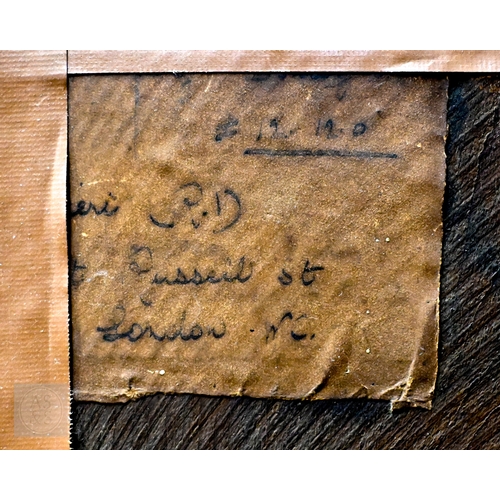 12-12-0
eri R.D
t Russell st
London WC.